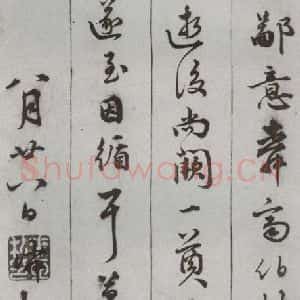 鄙意幸高
逝後尚闕一奠
遂至因循干
八月廿六日
Shufawang.CN